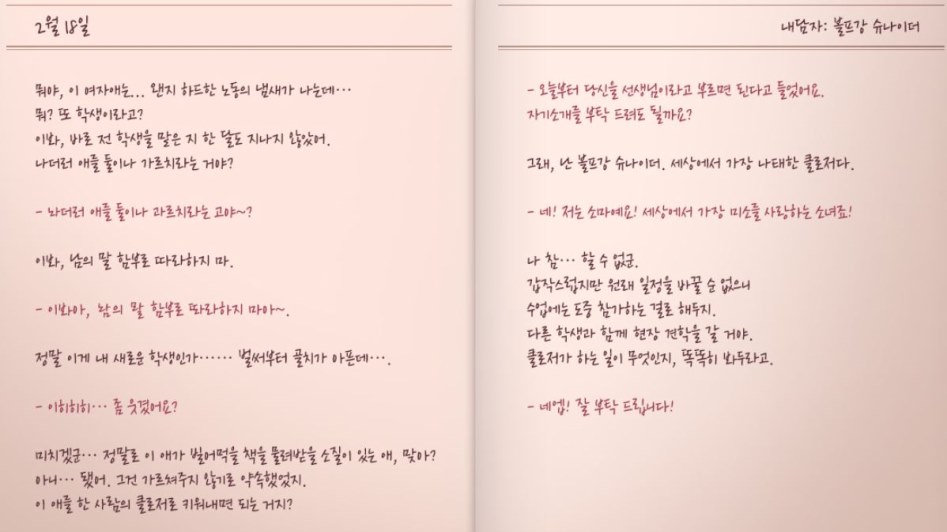 2월 18일
뭐야, 이 여자애는... 왠지 하드한 노동의 냄새가 나는데…
뭐? 또 학생이라고?
이봐, 바로 전 학생을 맡은 지 한 달도 지나지 않았어.
나더러 애를 둘이나 가르치라는 거야?
- 놔더러 애를 둘이나 과르치라는 고야~?
이봐, 남의 말 함부로 따라하지 마.
- 이봐아, 놤의 말 함부로 똬라하지 마아~.
정말 이게 내 새로운 학생인가…… 벌써부터 골치가 아픈데….
- 이히히히… 좀 웃겼어요?
미치겠군… 정말로 이 애가 빌어먹을 책을 물려받을 소질이 있는 애, 맞아?
아니… 됐어. 그건 가르쳐주지 않기로 약속했었지.
이 애를 한 사람의 클로저로 키워내면 되는 거지?
내담자: 볼프강 슈나이더
- 오늘부터 당신을 선생님이라고 부르면 된다고 들었어요.
자기소개를 부탁 드려도 될까요?
그래, 난 볼프강 슈나이더. 세상에서 가장 나태한 클로저다.
- 네! 저는 소마예요! 세상에서 가장 미소를 사랑하는 소녀죠!
나 참… 할 수 없군.
갑작스럽지만 원래 일정을 바꿀 순 없으니
수업에는 도중 참가하는 걸로 해두지.
다른 학생과 함께 현장 견학을 갈 거야.
클로저가 하는 일이 무엇인지, 똑똑히 봐두라고.
- 네엡! 잘 부탁 드립니다!